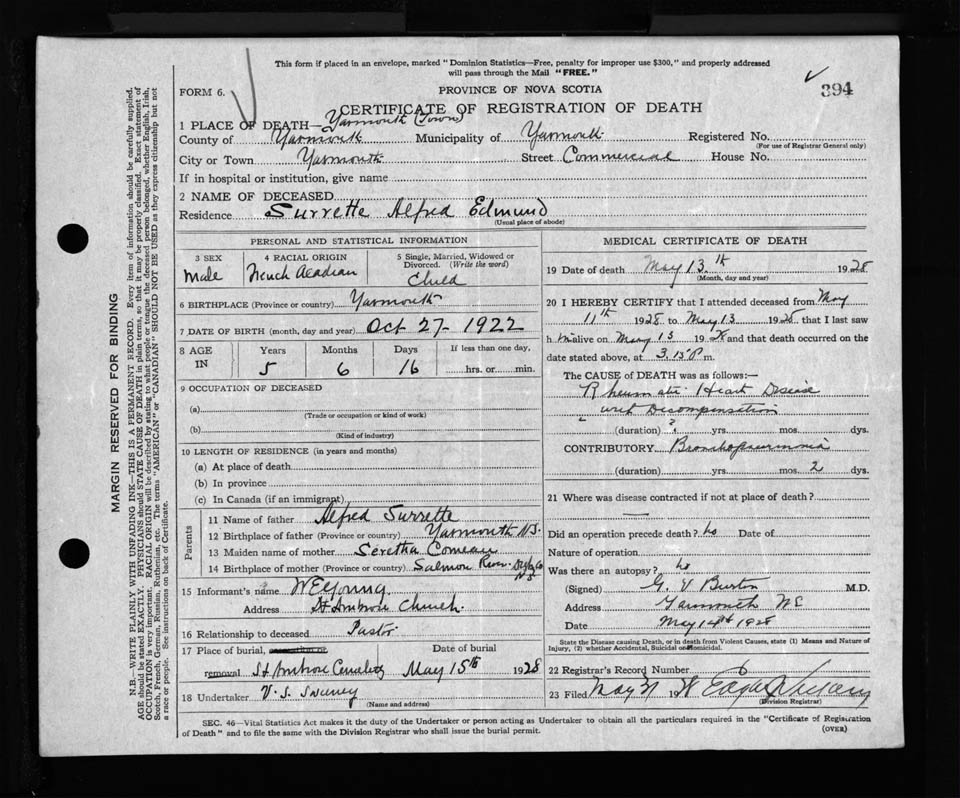 This form if placed in an envelope, marked "Dominion Statistics—Free, penalty for improper use $300," and properly addressed
will pass through the Mail "FREE."
FORM 6.
PROVINCE OF NOVA SCOTIA
394
CERTIFICATE OF REGISTRATION OF DEATH
1 PLACE OF DEATH— Yarmouth (Town)
County of Yarmouth Municipality of Yarmouth Registered No.
(For use of Registrar General only)
City or Town Yarmouth Street Commercial House No.
If in hospital or institution, give name
2 NAME OF DECEASED
Residence Surrette Alfred Edmund
(Usual place of abode)
PERSONAL AND STATISTICAL INFORMATION
3 SEX 4 RACIAL ORIGIN 5 Single, Married, Widowed or
Divorced. (Write the word)
Male French Acadian Child
6 BIRTHPLACE (Province or country) Yarmouth
7 DATE OF BIRTH (month, day and year) Oct 27- 1922
8 AGE IN Years Months Days If less than one day,
5 6 16 hrs. or min.
9 OCCUPATION OF DECEASED
(a)
(Trade or occupation or kind of work)
(b)
(Kind of industry)
10 LENGTH OF RESIDENCE (in years and months)
(a) At place of death
(b) In province
(c) In Canada (if an immigrant)
Parents
11 Name of father Alfred Surrette
12 Birthplace of father (Province or country) Yarmouth N.S.
13 Maiden name of mother Seretha Comeau
14 Birthplace of mother (Province or country) Salmon River Digby Co
N S
15 Informant's name W E Young
Address St Ambrose Church.
16 Relationship to deceased Pastor
17 Place of burial, Date of burial
removal St Ambrose Cemetery May 15th 1928
18 Undertaker V. S. Sweeny
(Name and address)
MEDICAL CERTIFICATE OF DEATH
19 Date of death May 13th 1928
(Month, day and year)
20 I HEREBY CERTIFY that I attended deceased from May
11th 1928 to May 13 1928 that I last saw
him alive on May 13 1928 and that death occurred on the
date stated above, at 3.15 P m.
The CAUSE of DEATH was as follows:—
Rheumatic Heart Disease
with Decompensation
(duration) ? yrs. mos. dys.
CONTRIBUTORY Bronchopneumonia
(duration) yrs. mos. 2 dys.
21 Where was disease contracted if not at place of death?
Did an operation precede death? no Date of
Nature of operation
Was there an autopsy? no
(Signed) G. V Burton M.D.
Address Yarmouth NS
Date May 14th 1928
State the Disease causing Death, or in death from Violent Causes, state (1) Means and Nature of
Injury, (2) whether Accidental, Suicidal or Homicidal.
22 Registrar's Record Number 6
23 Filed May 21 19
(Division Registrar)
SEC. 46—Vital Statistics Act makes it the duty of the Undertaker or person acting as Undertaker to obtain all the particulars required in the "Certificate of Registration
of Death" and to file the same with the Division Registrar who shall issue the burial permit.
(OVER)
MARGIN RESERVED FOR BINDING
N.B.—WRITE PLAINLY WITH UNFADING INK—THIS IS A PERMANENT RECORD. Every item of information should be carefully supplied.
AGE should be stated EXACTLY. PHYSICIANS should STATE CAUSE OF DEATH in plain terms, so that it may be properly classified. Exact statement of
OCCUPATION is very important. RACIAL ORIGIN will be described by stating to what people or tongue the deceased person belonged, whether English, Irish,
Scotch, French, German, Russian, Ruthenian, etc. The terms "AMERICAN" or "CANADIAN" SHOULD NOT BE USED as they express citizenship but not
a race or people. See instructions on back of Certificate.